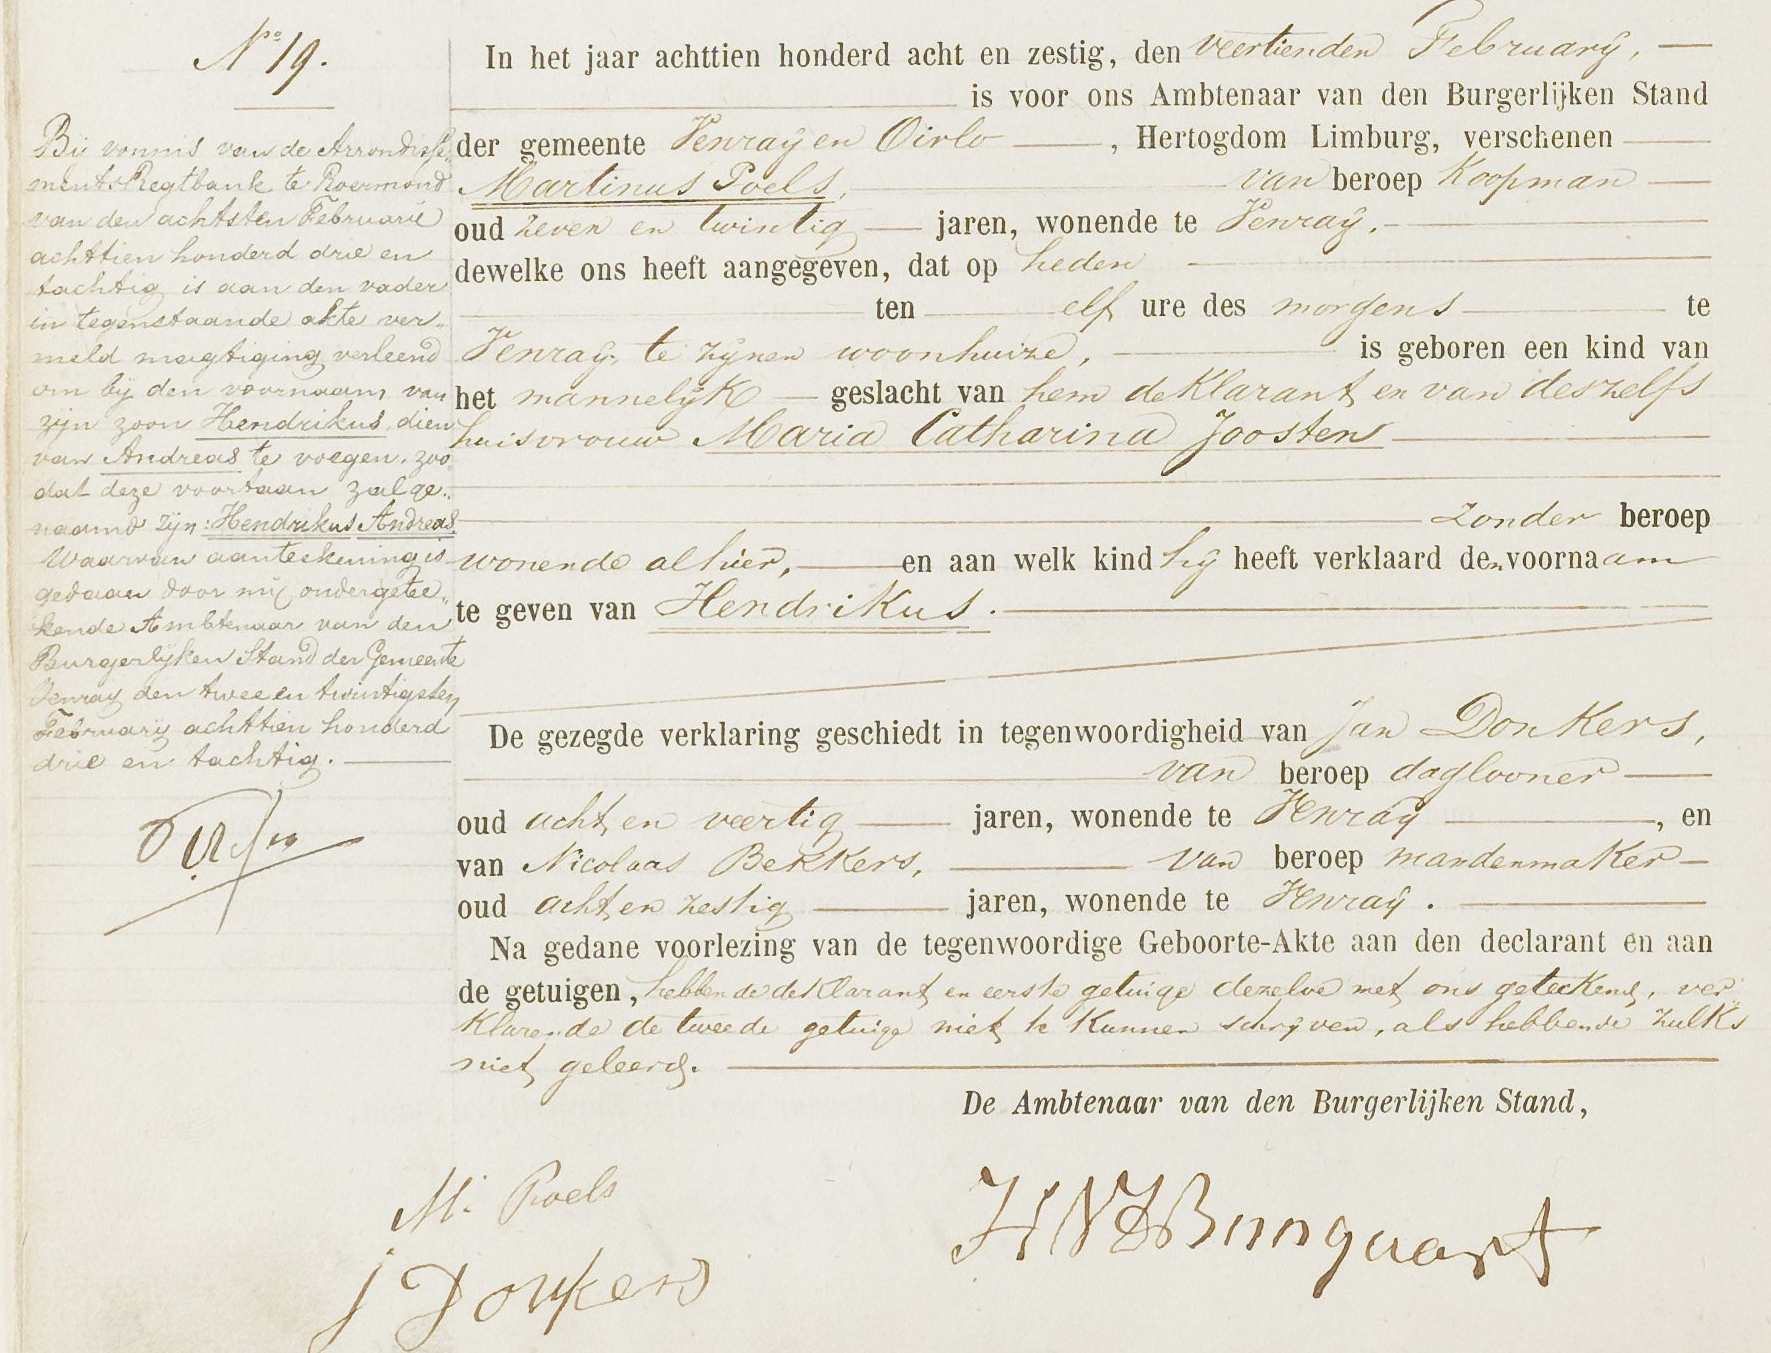 No 19.
Bij vonnis van de Arrondisse-
ments Regtbank te Roermond
van den achtsten Februarie
achttien honderd drie en
tachtig is aan den vader
in tegenstaande akte ver-
meld magtiging verleend
om bij den voornaam van
zijn zoon Hendrikus, dien
van Andreas te voegen. zoo
dat deze voortaan zal ge-
naamd zijn: Hendrikus Andreas.
Waarvan aanteekening is
gedaan door mij ondergetee-
kende Ambtenaar van den
Burgerlijken Stand der Gemeente
Venray den twee en twintigsten
February achttien honderd
drie en tachtig.
In het jaar achttien honderd acht en zestig, den veertienden February,
is voor ons Ambtenaar van den Burgerlijken Stand
der gemeente Venray en Oirlo, Hertogdom Limburg, verschenen
Martinus Poels, van beroep Koopman
oud zeven en twintig jaren, wonende te Venray,
dewelke ons heeft aangegeven, dat op heden
ten elf ure des morgens te
Venray, te zijnen woonhuize, is geboren een kind van
het mannelijk geslacht van hem deklarant en van deszelfs
huisvrouw Maria Catharina Joosten
zonder beroep
wonende alhier, en aan welk kind hij heeft verklaard den voornaam
te geven van Hendrikus.
De gezegde verklaring geschiedt in tegenwoordigheid van Jan Donkers,
van beroep daglooner
oud acht en veertig jaren, wonende te Venray, en
van Nicolaas Bekkers, van beroep mandenmaker
oud acht en zestig jaren, wonende te Venray.
Na gedane voorlezing van de tegenwoordige Geboorte-Akte aan den declarant en aan
de getuigen, hebben de deklarant en eerste getuige dezelve met ons geteekend, ver-
klarende de tweede getuige niet te kunnen schrijven, als hebbende zulks
niet geleerd.
De Ambtenaar van den Burgerlijken Stand,
M. Poels
J Donkers